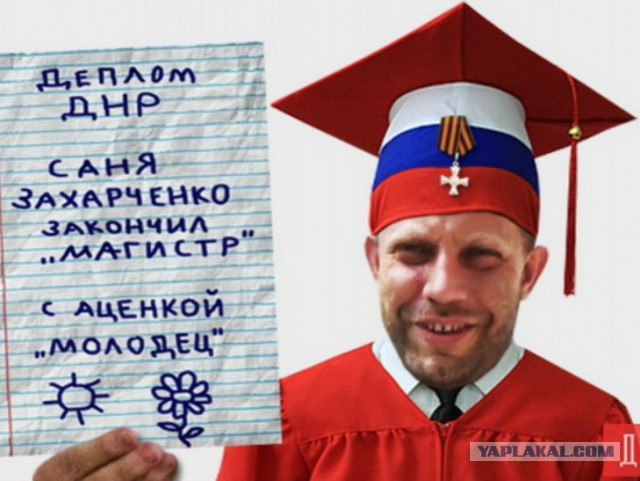 ДЕПЛОМ
ДНР
САНЯ
ЗАХАРЧЕНКО
ЗАКОНЧИЛ
„МАГИСТР"
С АЦЕНКОЙ
„МОЛОДЕЦ"
YAPLAKAL.COM
Д